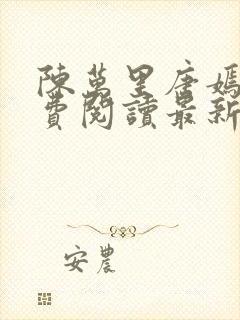 陳萬里唐嫣
費閱讀最新
安農